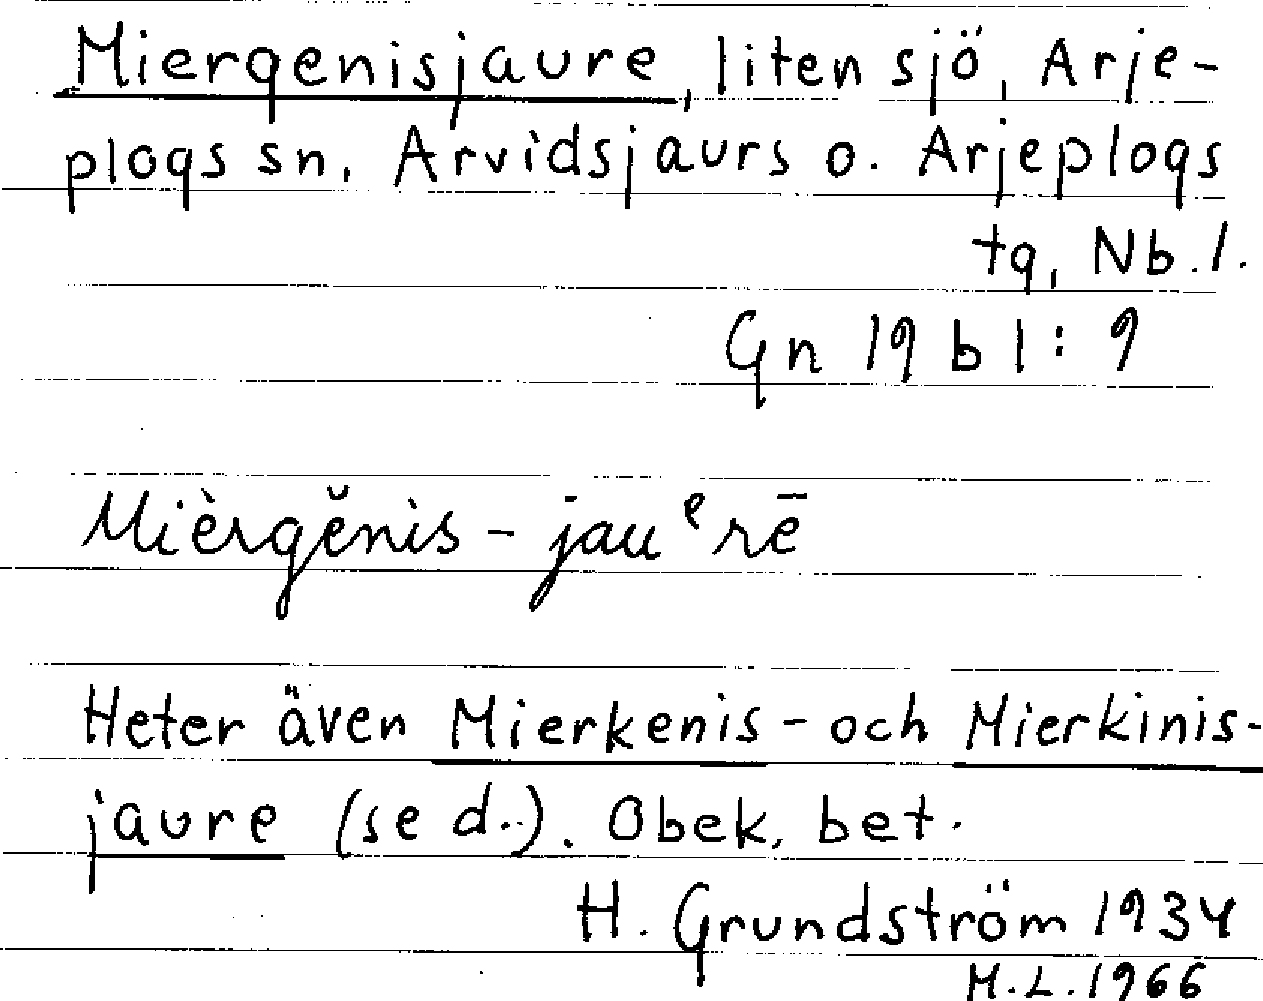 Miergenisjaure, liten sjö, Arje-
plogs sn, Arvidsjaurs o. Arjeplogs
tg, Nb.l.
Gn 19 b 1:9
Mièrgĕnìs-jauᵉrē
Heter även Mierkenis- och Mierkinis-
jaure (se d.:). Obek. bet.
H. Grundström 1934
M.L. 1966